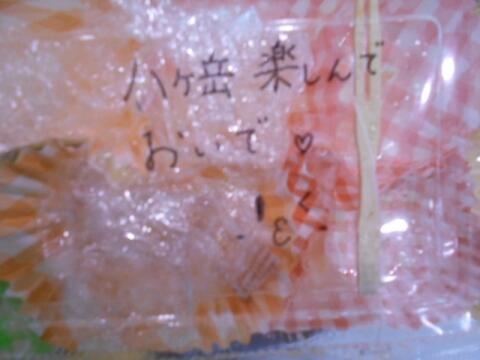 八ヶ岳 楽しんで
おいで♡